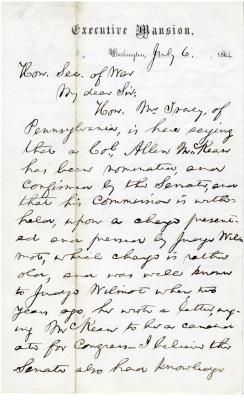 Executive Mansion,
Washington, July 6, 1864
Hon. Sec. of War
My dear Sir.
Hon. Mr. Tracy, of
Pennsylvania, is here saying
that a Col. Allen McKean
has been nominated and
confirmed by the Senate, and
that his Commission is with-
held, upon a charge present-
ed and pressed by Judge Wil-
mot, which charge is rather
old, and was well known
to Judge Wilmot when two
years ago, he wrote a letter, urg-
ing McKean to be a candid
ate for Congress– I believe the
Senate also had knowledge